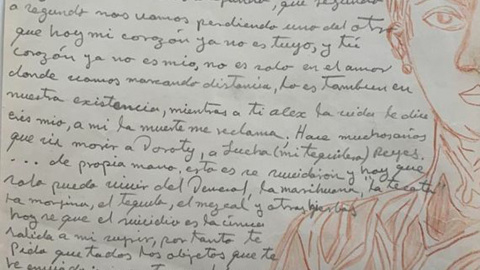 que segundo
a segundo nos vamos perdiendo uno del otro
que hoy mi corazón ya no es tuyo, y tu
corazón ya no es mio, no es solo en el amor
donde vamos marcando distancia, lo es tambien en
nuestra existencia, mientras a ti alex la vida le dice
eres mio, a mi la muerte me reclama. Hace muchos años
que vi morir a Doroty, a Lucha (mi tequilera) Reyes.
... de propia mano. esto es se suicidaron y hay que
solo puedo vivir del Demerol, la marihuana, "la tecata"
la morfina, el tequila, el mezcal y otras hierbas
hoy se que el suicidio es la única
salida a mi, por tanto te
pido que todos los objetos que te
he